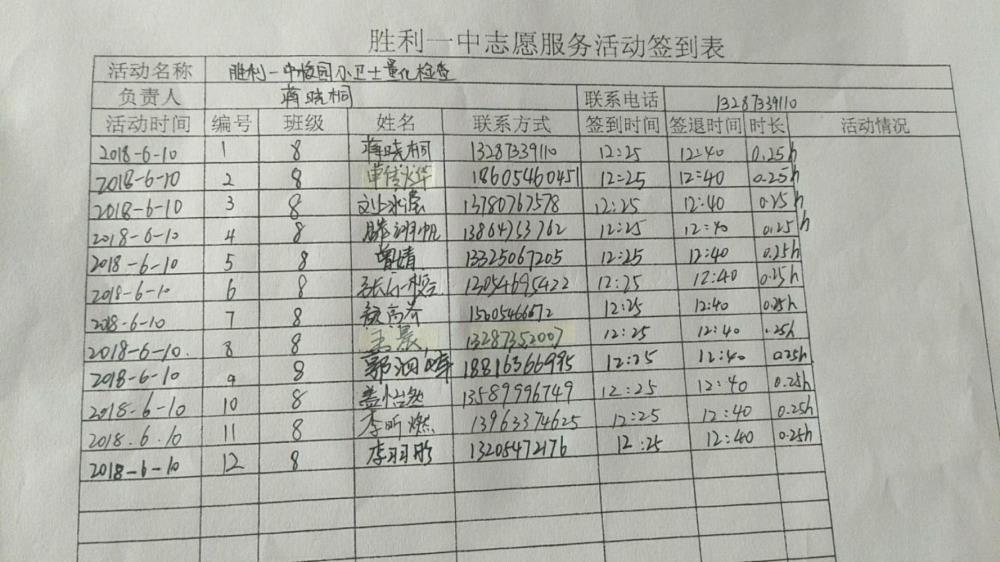 胜利一中志愿服务活动签到表
活动名称 胜利一中校园小卫士量化检查
负责人 蒋晓桐 联系电话 13287339110
活动时间 编号 班级 姓名 联系方式 签到时间 签退时间 时长 活动情况
2018-6-10 1 8 蒋晓桐 13287339110 12:25 12:40 0.25h
2018-6-10 2 8 单传烨 18605460451 12:25 12:40 0.25h
2018-6-10 3 8 13780767578 12:25 12:40 0.25h
2018-6-10 4 8 13864753762 12:25 12:40 0.25h
2018-6-10 5 8 曾婧 13325067205 12:25 12:40 0.25h
2018-6-10 6 8 12:25 12:40 0.25h
2018-6-10 7 8 12:25 12:40 0.25h
2018-6-10. 8 8 王晨 13287352007 12:25 12:40 .25h
2018-6-10 9 8 18816366995 12:25 12:40 0.25h
2018-6-10 10 8 盖怡然 13589996749 12:25 12:40 0.25h
2018.6.10 11 8 李昕燃 13963374625 12:25 12:40 0.25h
2018-6-10 12 8 李羽彤 13205472176 12:25 12:40 0.25h